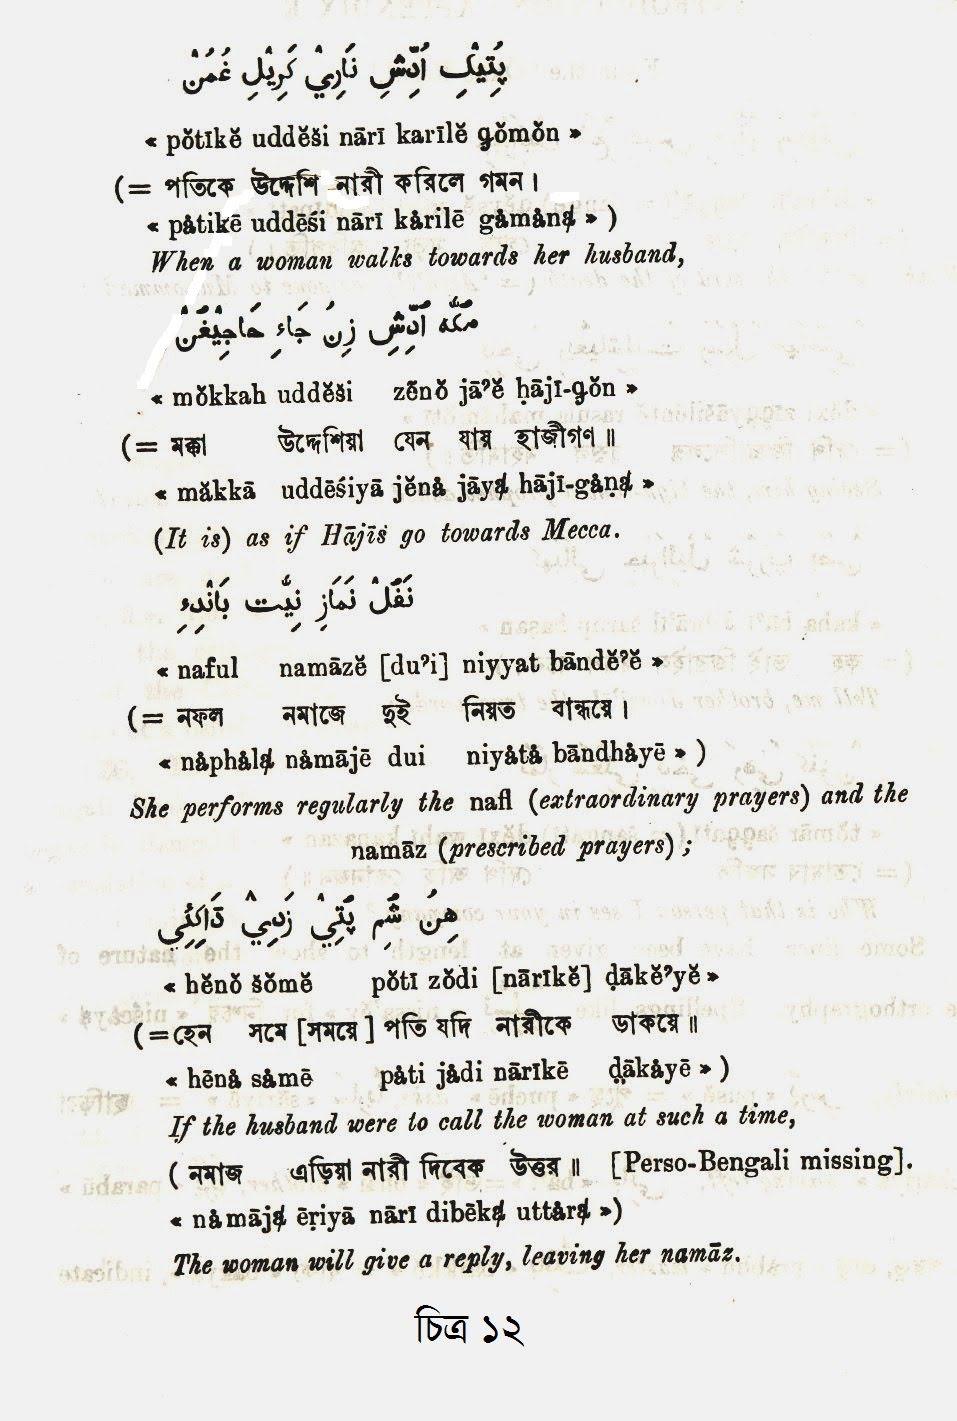 پَتِيْكِ اُدِّشِ نَارِيْ كَرِيْلِ غَمَنْ
« pŏtīkĕ uddĕši nārī karilĕ gŏmŏn »
(= পতিকে উদ্দেশি নারী করিলে গমন।
« påtikē uddēśi nārī kårilē gåmånḁ » )
When a woman walks towards her husband,
مَكَّه اُدِّشِ زِنُ جَاءِ حَاجِيْغَنْ
« mŏkkah uddĕši zĕnŏ jā’ĕ ḥājī-gŏn »
(= মক্কা উদ্দেশিয়া যেন যায় হাজীগণ॥
« måkkā uddēśiyā jĕnå jāyḁ hājī-gåṇḁ »
(It is) as if Hājīs go towards Mecca.
نَفَلْ نَمَازِ نِيَّت بَانْدِءِ
« naful namāzĕ [du’i] niyyat bāndĕ’ĕ »
(= নফল নমাজে দুই নিয়ত বান্ধয়ে।
« nåphålḁ nåmājē dui niyåtå bāndhåyē » )
She performs regularly the nafl (extraordinary prayers) and the
namāz (prescribed prayers) ;
هِنُ شَمِ پَتِيْ زَدِيْ ڈَاكِئِي
« hĕnŏ šŏmĕ pŏtī zŏdi [nārīkĕ] ḍākĕ’yĕ »
(=হেন সমে [সময়ে] পতি যদি নারীকে ডাকয়ে॥
« hēnå såmē påti jådi nārīkē ḍākåyē » )
If the husband were to call the woman at such a time,
( নমাজ এড়িয়া নারী দিবেক উত্তর॥ [Perso-Bengali missing].
« nåmājḁ ēṛiyā nārī dibēkḁ uttårḁ »)
The woman will give a reply, leaving her namāz.
চিত্র ১২